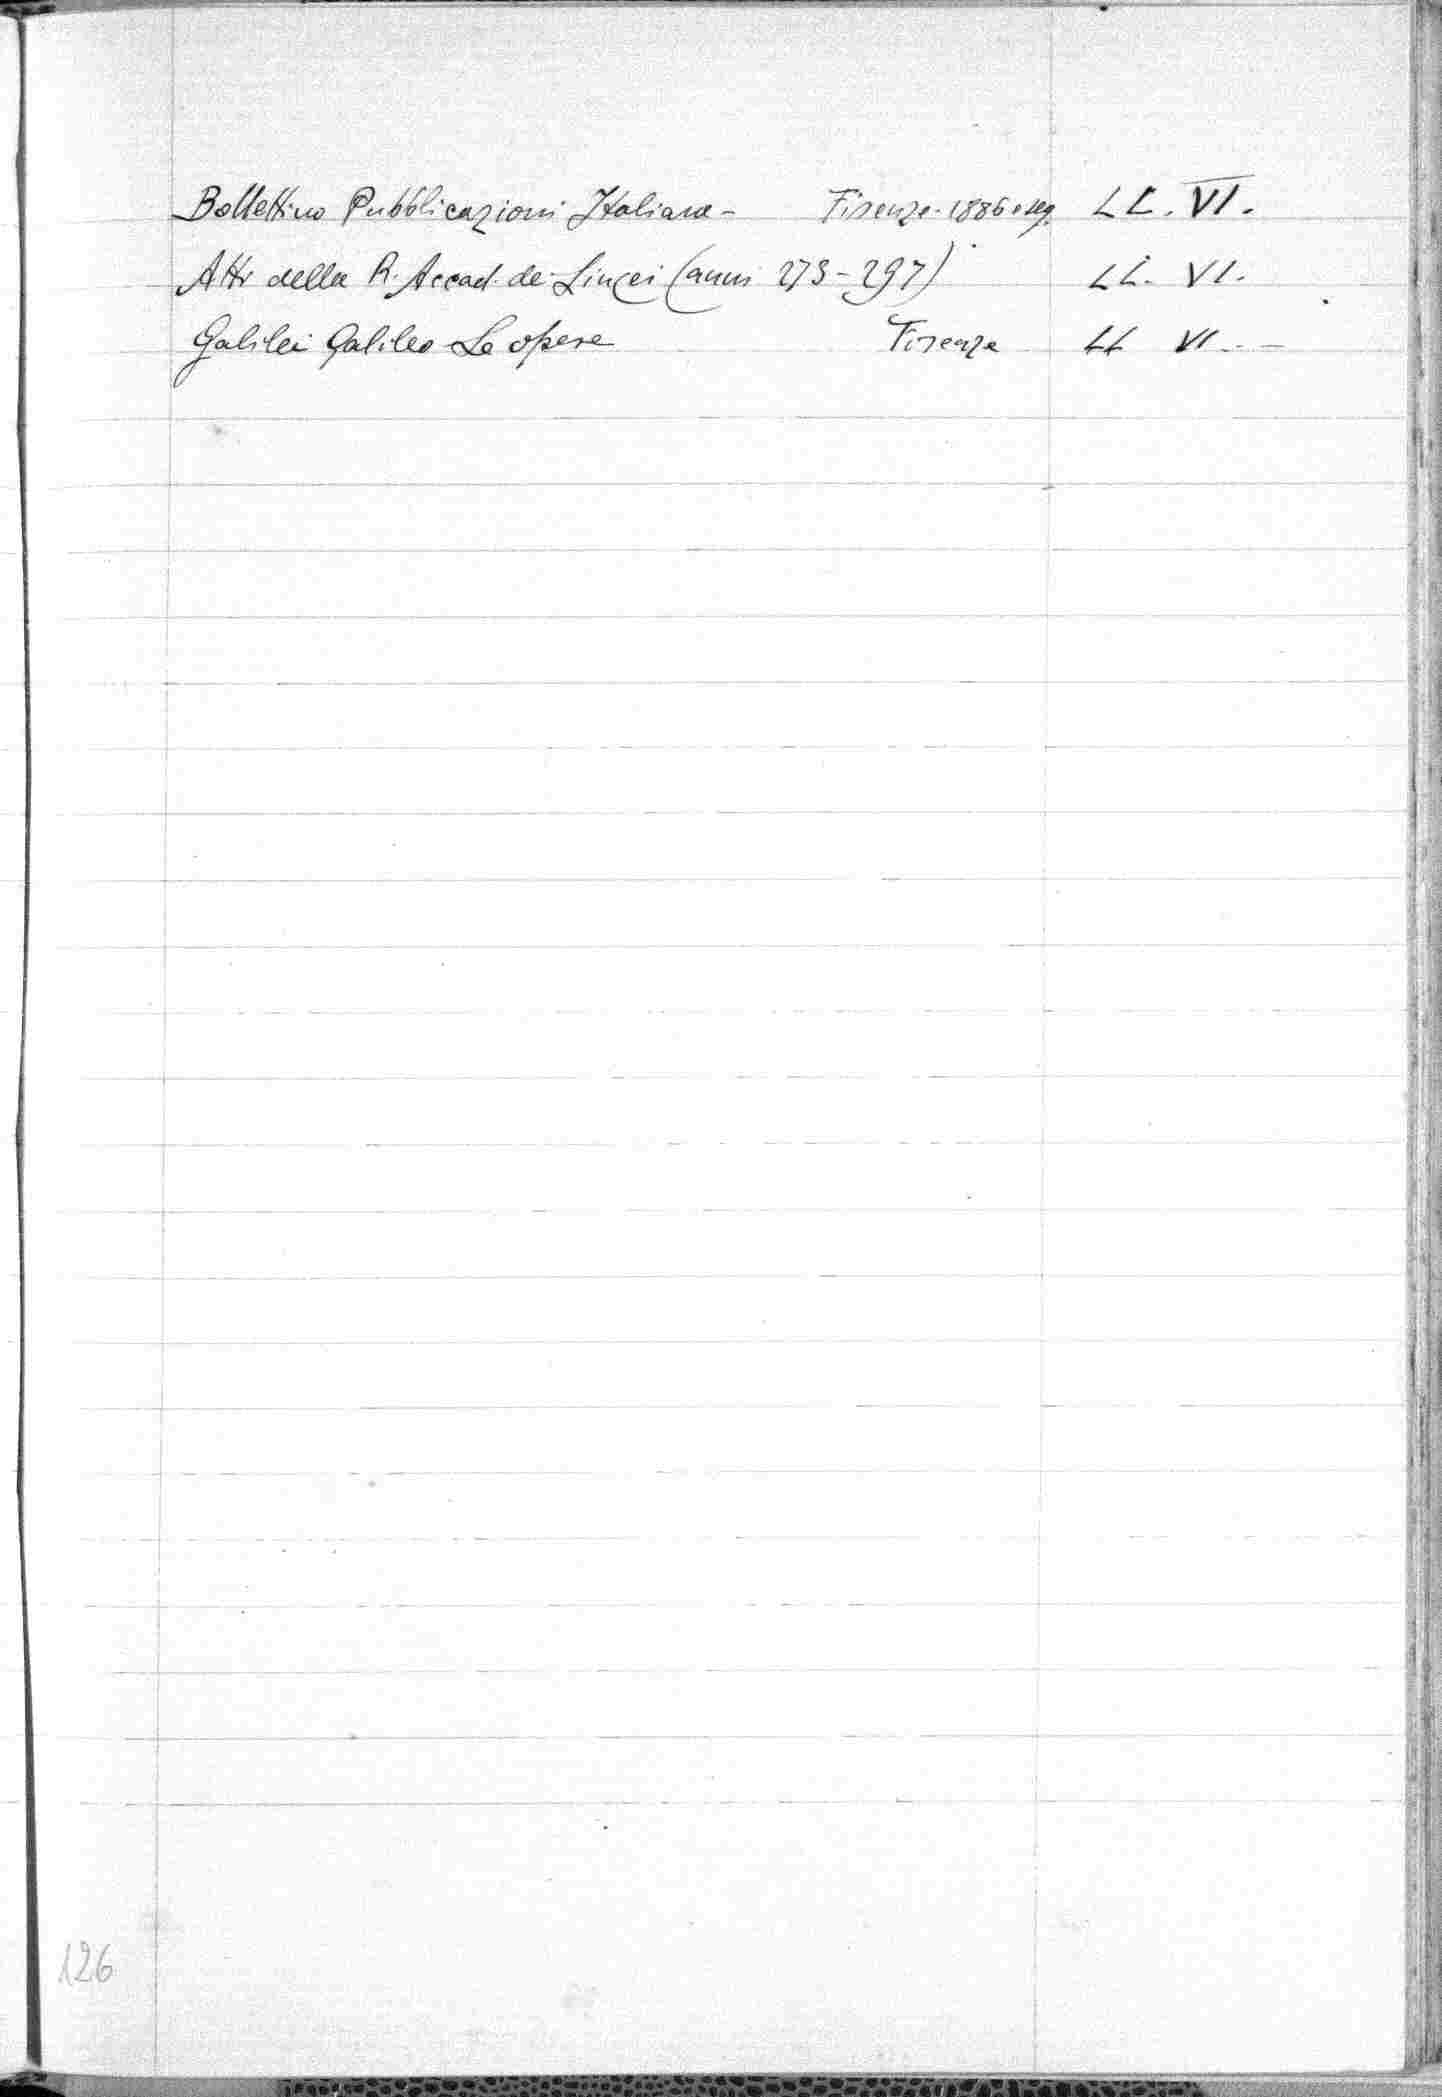 Bollettino Pubblicazioni Italiane - Firenze. 1886 e seg. LL. VI.
Atti della R. Accad. dei Lincei (anni 273-297) LL. VI.
Galilei Galileo Le opere Firenze LL VI - -
126